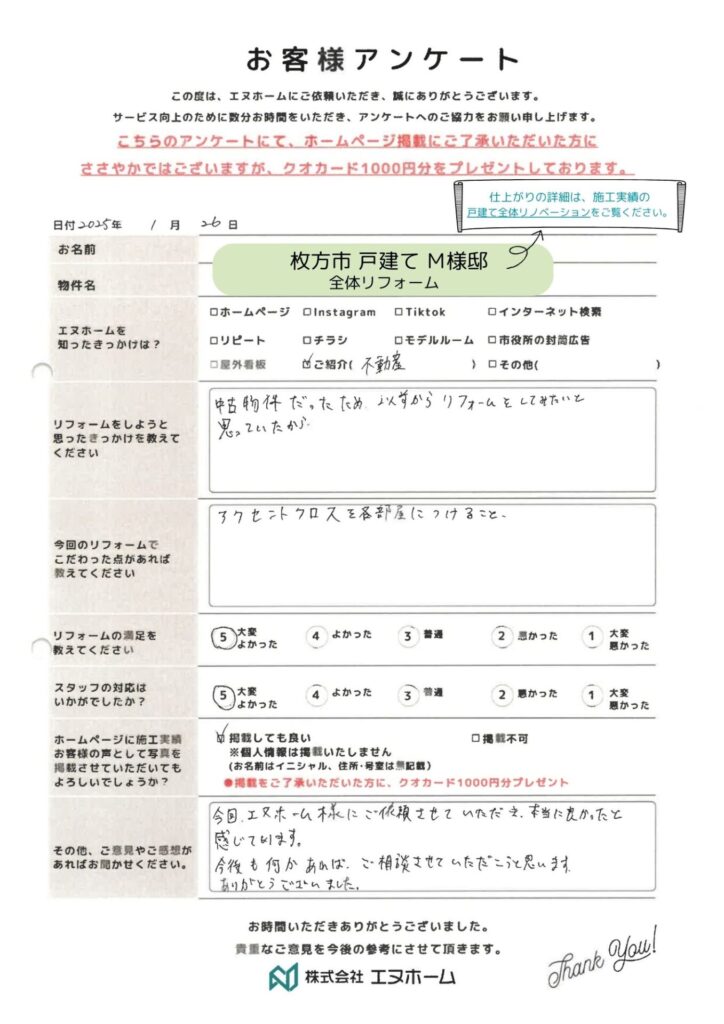 お客様アンケート
この度は、エヌホームにご依頼いただき、誠にありがとうございます。
サービス向上のために数分お時間をいただき、アンケートへのご協力をお願い申し上げます。
こちらのアンケートにて、ホームページ掲載にご了承いただいた方に
ささやかではございますが、クオカード1000円分をプレゼントしております。
仕上がりの詳細は、施工実績の
戸建て全体リノベーションをご覧ください。
日付2025年 1月 26日
お名前
枚方市 戸建て M様邸
物件名
全体リフォーム
エヌホームを
知ったきっかけは？
□ホームページ □Instagram □Tiktok □インターネット検索
□リピート □チラシ □モデルルーム □市役所の封筒広告
□屋外看板 ☑ご紹介( 不動産 ) □その他( )
リフォームをしようと
思ったきっかけを教えて
ください
中古物件だったため、以前からリフォームをしてみたいと
思っていたから
今回のリフォームで
こだわった点があれば
教えてください
アクセントクロスを各部屋につけること。
リフォームの満足を
教えてください
5 大変よかった 4 よかった 3 普通 2 悪かった 1 大変悪かった
スタッフの対応は
いかがでしたか？
5 大変よかった 4 よかった 3 普通 2 悪かった 1 大変悪かった
ホームページに施工実績
お客様の声として写真を
掲載させていただいても
よろしいでしょうか？
☑掲載しても良い □掲載不可
※個人情報は掲載いたしません
(お名前はイニシャル、住所･号室は無記載)
●掲載をご了承いただいた方に、クオカード1000円分プレゼント
その他、ご意見やご感想が
あればお聞かせください。
今回、エヌホーム様にご依頼させていただき、本当に良かったと
感じています。
今後も何かあれば、ご相談させていただこうと思います。
ありがとうございました。
お時間いただきありがとうございました。
貴重なご意見を今後の参考にさせて頂きます。
株式会社 エヌホーム
Thank You!